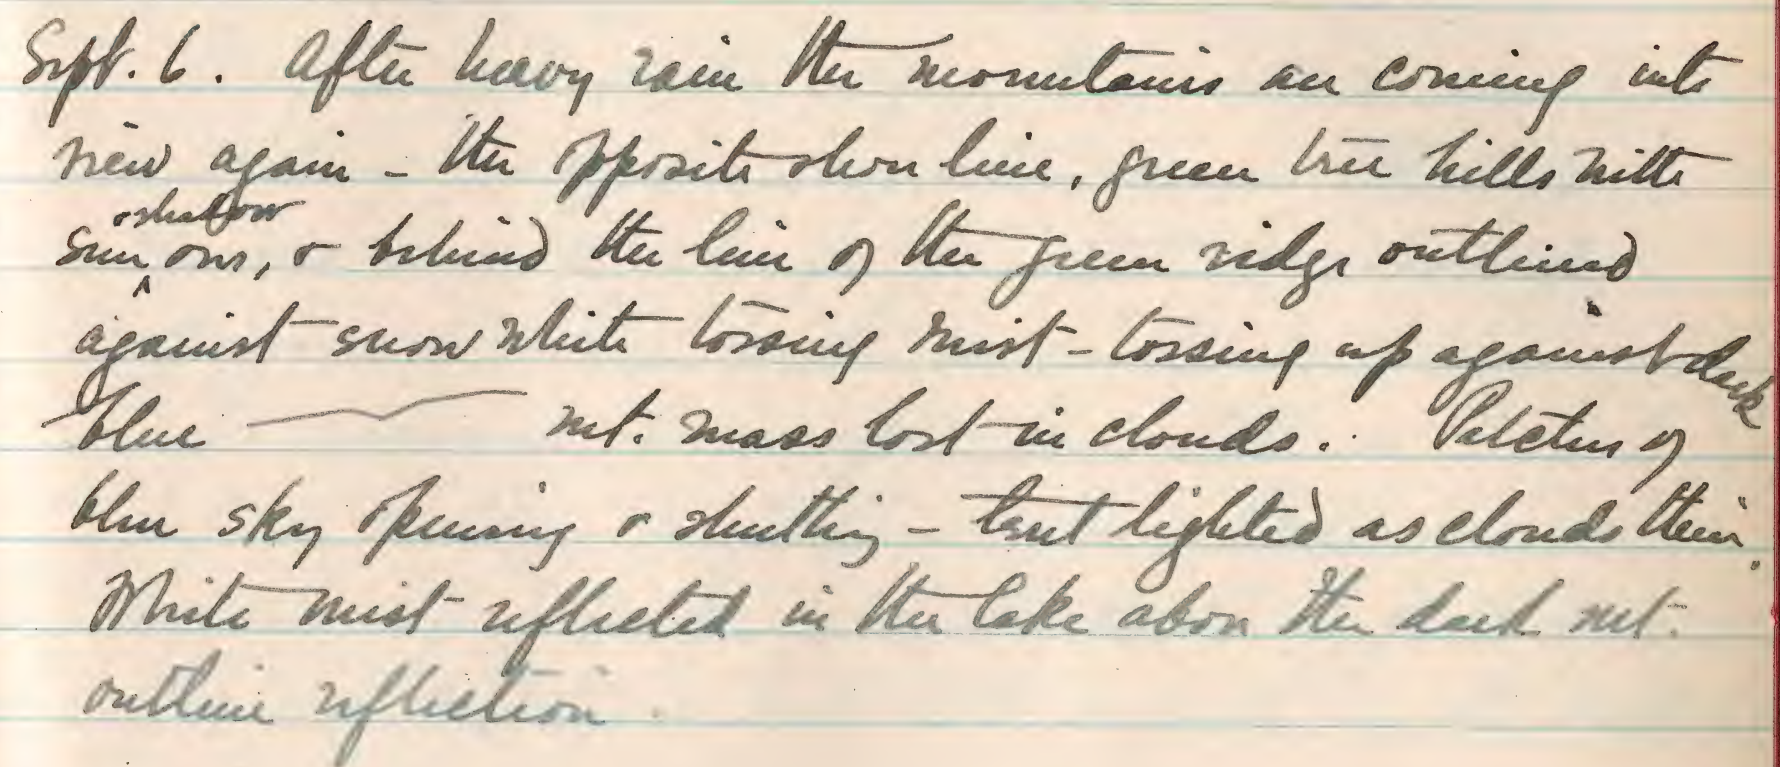 Sept. 6. After heavy rain the mountains are coming into
view again – the opposite shore line, green tree hills with
sun & shadow on, & behind the line of the green ridge outlined
against snow white tossing mist – tossing up against dark
blue mt. mass lost in clouds. Patches of
blue sky opening & shutting – lighted as clouds thin.
White mist reflected in the lake above the dark mt.
outline reflection.